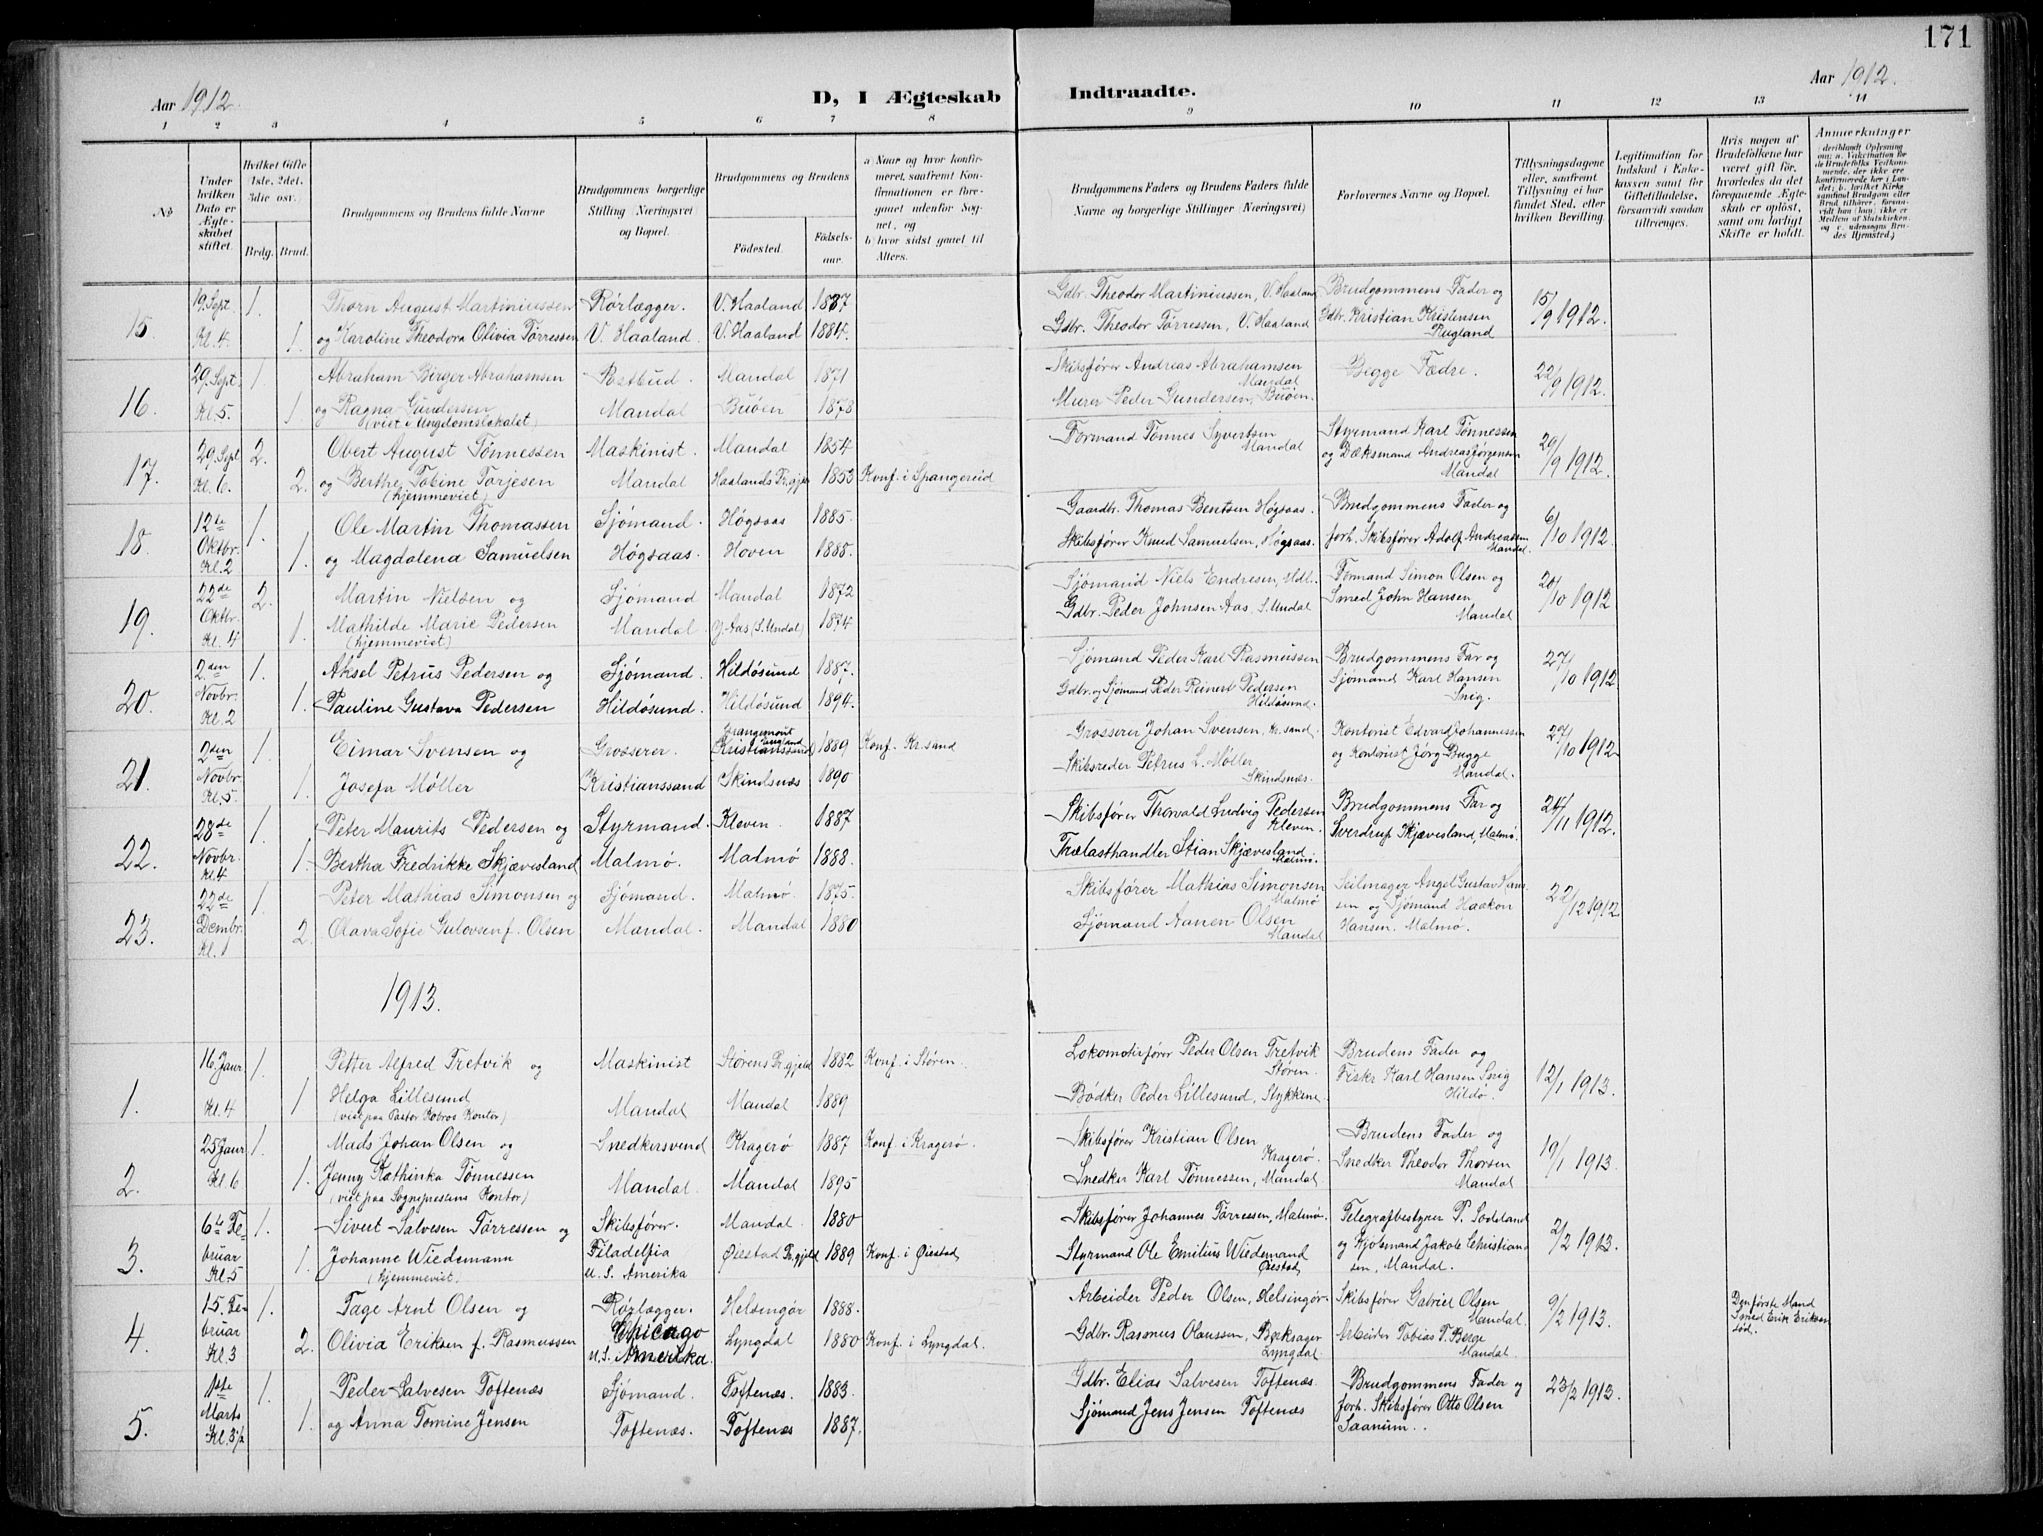 171
Aar 1912.
D, I Ægteskab Indtraadte.
Aar 1912.
1 2 3 4 5 6 7 8 9 10 11 12 13 14
No
Under hvilken Dato er Ægteskabet stiftet.
Hvilket Gifte 1ste, 2det, 3die osv.
Brdg. Brud.
Brudgommens og Brudens fulde Navne
Brudgommens borgerlige Stilling (Næringsvei) og Bopæl.
Brudgommens og Brudens
Fødested.
Fødselsaar.
a Naar og hvor konfirmeret, saafremt Konfirmationen er foregaaet udenfor Sognet, og
b hvor sidst gaaet til Alters.
Brudgommens Faders og Brudens Faders fulde Navne og borgerlige Stillinger (Næringsvei)
Forlovernes Navne og Bopæl.
Tillysningsdagene eller, saafremt Tillysning ei har fundet Sted, efter hvilken Bevilling.
Legitimation for Indskud i Enkekassen samt for Giftetilladelse, forsaavidt saadan tiltrænges.
Hvis nogen af Brudefolkene har været gift før, hvorledes da det foregaaende Ægteskab er opløst, samt om lovligt Skifte er holdt.
Anmerkninger
15 19. Sept. Kl. 4. 1. Thorn August Martiniussen Rørlægger. V. Haaland 1887 Gdbr. Theodor Martiniussen, V. Haaland Brudgommens Fader og 15/9 1912.
1. og Karoline Theodora Olivia Tørressen V. Haaland. V. Haaland 1884. Gdbr. Theodor Tørressen, V. Haaland Gdbr. Kristian Kristensen
16. 29. Sept. Kl. 5. 1. Abraham Birger Abrahamsen Postbud. Mandal 1871 Skibsfører Andreas Abrahamsen Mandal Begge Fædre. 22/9 1912.
1. og Ragna Gundersen Mandal Buøen 1878 Murer Peder Gundersen, Buøen.
(viet i Ungdomslokalet)
17. 29. Sept Kl. 6. 2. Obert August Tønnessen Maskinist. Mandal 1854 Formand Tønnes Syvertsen Mandal Styrmand Karl Tønnessen 29/9 1912.
2. og Berthe Tobine Torjesen Mandal Haalands Pr.gjer 1853 Konf. i Spangereid og Dæksmand Andreas Jørgensen Mandal
(hjemmeviet)
18. 12te Oktbr. Kl. 2 1. Ole Martin Thomassen Sjømand. Høgsaas 1885. Gaardbr. Thomas Bentsen Høgsaas. Brudgommens Fader og 6/10 1912.
1. og Magdalena Samuelsen Høgsaas. Hoven 1888. Skibsfører Knud Samuelsen, Høgsaas. forh. Skibsfører Adolf Andreassen Mandal
19. 22de Oktbr. Kl. 4 2. Martin Nielsen og Sjømand Mandal 1872 Sjømand Niels Endresen, Mdl. Formand Simon Olsen og 20/10 1912
1. Mathilde Marie Pedersen Mandal. Y. Aas (S. Undal) 1874 Gdbr. Peder Johnsen Aas, S. Undal Smed John Hansen Mandal
(hjemmeviet)
20. 2.den Novbr. Kl. 2 1. Aksel Petrus Pedersen og Sjømand. Hildøsund 1887. Sjømand Peder Karl Rasmussen Brudgommens Far og 27/10 1912.
1. Pauline Gustava Pedersen Hildøsund. Hildøsund 1894. Gdbr. og Sjømand Peder Reinert Pedersen Hildøsund. Sjømand Karl Hansen Snig.
21. 2den Novbr. Kl. 5. 1. Eimar Svensen og Grosserer. Grangemout England Kristianssund 1889 Konf. Kr.sand Grosserer Johan Svensen, Kr.sand Kontorist Edvard Johannessen 27/10 1912
1. Josefa Møller Kristianssand Skindsnæs 1890 Skibsreder Petrus L. Møller Skindsnæs. og Kontorist Jørg Bugge Mandal.
22. 28de Novbr. Kl. 4 1. Peter Maurits Pedersen og Styrmand. Kleven. 1887 Skibsfører Thorvald Ludvig Pedersen Kleven. Brudgommens Far og 24/11 1912.
1. Bertha Fredrikke Skjævesland Malmø. Malmø 1888. Trælasthandler Stian Skjævesland Malmø. Sverdrup Skjævesland, Malmø.
23. 22de Dembr. Kl. 1 1. Peter Mathias Simonsen og Sjømand. Malmø. 1875. Skibsfører Mathias Simonsen Malmø Seilmager Angel Gustav Hansen og Sjømand Haakon Hansen. Malmø. 22/12 1912.
2. Olava Sofie Gulovsen f. Olsen Mandal. Mandal 1880 Sjømand Aanen Olsen Mandal
1913.
1. 16. Jaur Kl. 4 1. Petter Alfred Tretvik og Maskinist Størens Pr.gjeld 1882 Konf. i Støren. Lokomotivfører Peder Olsen Tretvik Støren. Brudens Fader og 12/1 1913.
1 Helga Lillesund Mandal Mandal 1889 Bødker Peder Lillesund, Stykkene. Fisker Karl Hansen Snig Hildø.
(viet paa Pastor Kobros Kontor)
2. 25 Jaur Kl. 6 1. Mads Johan Olsen og Snedkersvend Kragerø 1887 Konf. i Kragerø. Skibsfører Kristian Olsen Kragerø. Brudens Fader og 19/1 1913.
1. Jenny Kathinka Tønnessen Mandal. Mandal 1895 Snedker Karl Tønnessen, Mandal Snedker Theodor Thorsen Mandal
(viet paa Sogneprestens Kontor)
3. 6te Februar Kl. 5 1. Sivert Salvesen Tørressen og Skibsfører. Mandal. 1880 Skibsfører Johannes Tørressen, Malmø. Telegrafbestyrer P. Sodeland 2/2 1913.
1. Johanne Wiedemann Filadelfia U.S. Amerika Øiestad Pr.gjeld 1889 Konf. i Øiestad Styrmand Ole Emilius Wiedemand Øiestad og Kjøbmand Jakob Christiansen, Mandal.
(hjemmeviet)
4. 15. Februar Kl. 3 1. Tage Arnt Olsen og Rørlægger. Helsingør 1888. Arbeider Peder Olsen, Helsingør. Skibsfører Gabriel Olsen Mandal. 9/2 1913. Den første Mand Smed Erik Eriksen død.
2. Olivia Eriksen f. Rasmussen Chicago U.S. Amerika. Lyngdal 1880 Konf. i Lyngdal. Gdbr. Rasmus Olaussen, Lyngdal Arbeider Tobias T. Berge Mandal.
5. 1ste Marts Kl. 3½ 1. Peder Salvesen Toftenæs Sjømand. Toftenæs. 1883. Gdbr. Elias Salvesen Toftenæs. Brudgommens Fader og 23/2 1913.
1. og Anna Tomine Jensen Toftenæs. Toftenæs 1887. Sjømand Jens Jensen Toftenæs forh. Skibsfører Otto Olsen Saanum.